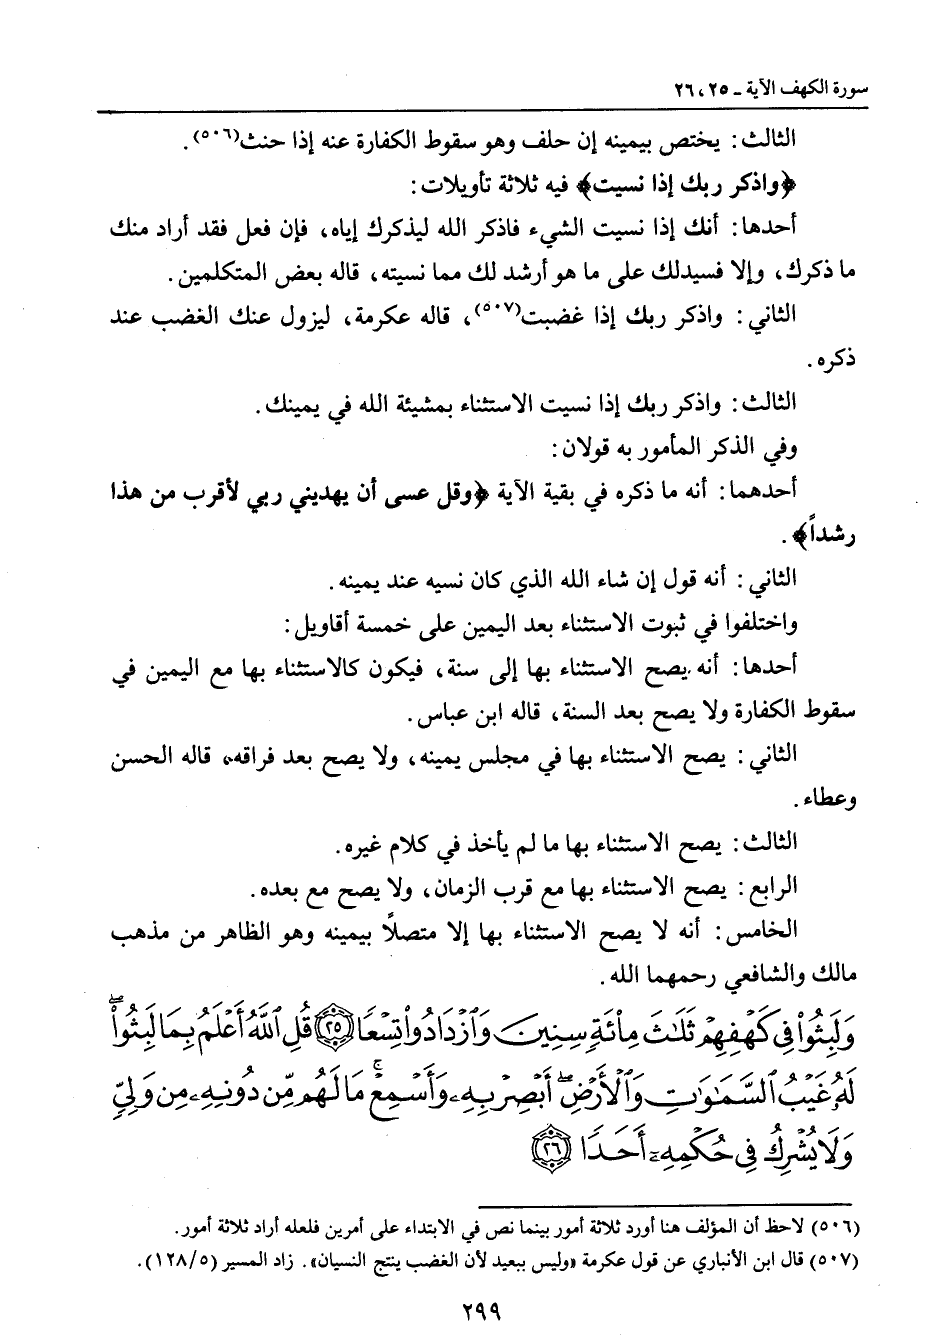 سورة الكهف الآية ـ ٢٥، ٢٦
الثالث: يختص بيمينه إن حلف وهو سقوط الكفارة عنه إذا حنث(٥٠٦).
﴿واذكر ربك إذا نسيت﴾ فيه ثلاثة تأويلات:
أحدها: أنك إذا نسيت الشيء فاذكر الله ليذكرك إياه، فإن فعل فقد أراد منك
ما ذكرك، وإلا فسيدلك على ما هو أرشد لك مما نسيته، قاله بعض المتكلمين.
الثاني: واذكر ربك إذا غضبت(٥٠٧)، قاله عكرمة، ليزول عنك الغضب عند
ذكره.
الثالث: واذكر ربك إذا نسيت الاستثناء بمشيئة الله في يمينك.
وفي الذكر المأمور به قولان:
أحدهما: أنه ما ذكره في بقية الآية ﴿وقل عسى أن يهديني ربي لأقرب من هذا
رشداً﴾.
الثاني: أنه قول إن شاء الله الذي كان نسيه عند يمينه.
واختلفوا في ثبوت الاستثناء بعد اليمين على خمسة أقاويل:
أحدها: أنه يصح الاستثناء بها إلى سنة، فيكون كالاستثناء بها مع اليمين في
سقوط الكفارة ولا يصح بعد السنة، قاله ابن عباس.
الثاني: يصح الاستثناء بها في مجلس يمينه، ولا يصح بعد فراقه، قاله الحسن
وعطاء.
الثالث: يصح الاستثناء بها ما لم يأخذ في كلام غيره.
الرابع: يصح الاستثناء بها مع قرب الزمان، ولا يصح مع بعده.
الخامس: أنه لا يصح الاستثناء بها إلا متصلاً بيمينه وهو الظاهر من مذهب
مالك والشافعي رحمهما الله.
وَلَبِثُوا۟ فِى كَهْفِهِمْ ثَلَـٰثَ مِا۟ئَةٍ سِنِينَ وَٱزْدَادُوا۟ تِسْعًا ﴿٢٥﴾ قُلِ ٱللَّهُ أَعْلَمُ بِمَا لَبِثُوا۟ۖ
لَهُۥ غَيْبُ ٱلسَّمَـٰوَٰتِ وَٱلْأَرْضِۖ أَبْصِرْ بِهِۦ وَأَسْمِعْۚ مَا لَهُم مِّن دُونِهِۦ مِن وَلِىٍّ
وَلَا يُشْرِكُ فِى حُكْمِهِۦٓ أَحَدًا ﴿٢٦﴾
(٥٠٦) لاحظ أن المؤلف هنا أورد ثلاثة أمور بينما نص في الابتداء على أمرين فلعله أراد ثلاثة أمور.
(٥٠٧) قال ابن الأنباري عن قول عكرمة «وليس ببعيد لأن الغضب ينتج النسيان». زاد المسير (١٢٨/٥).
٢٩٩